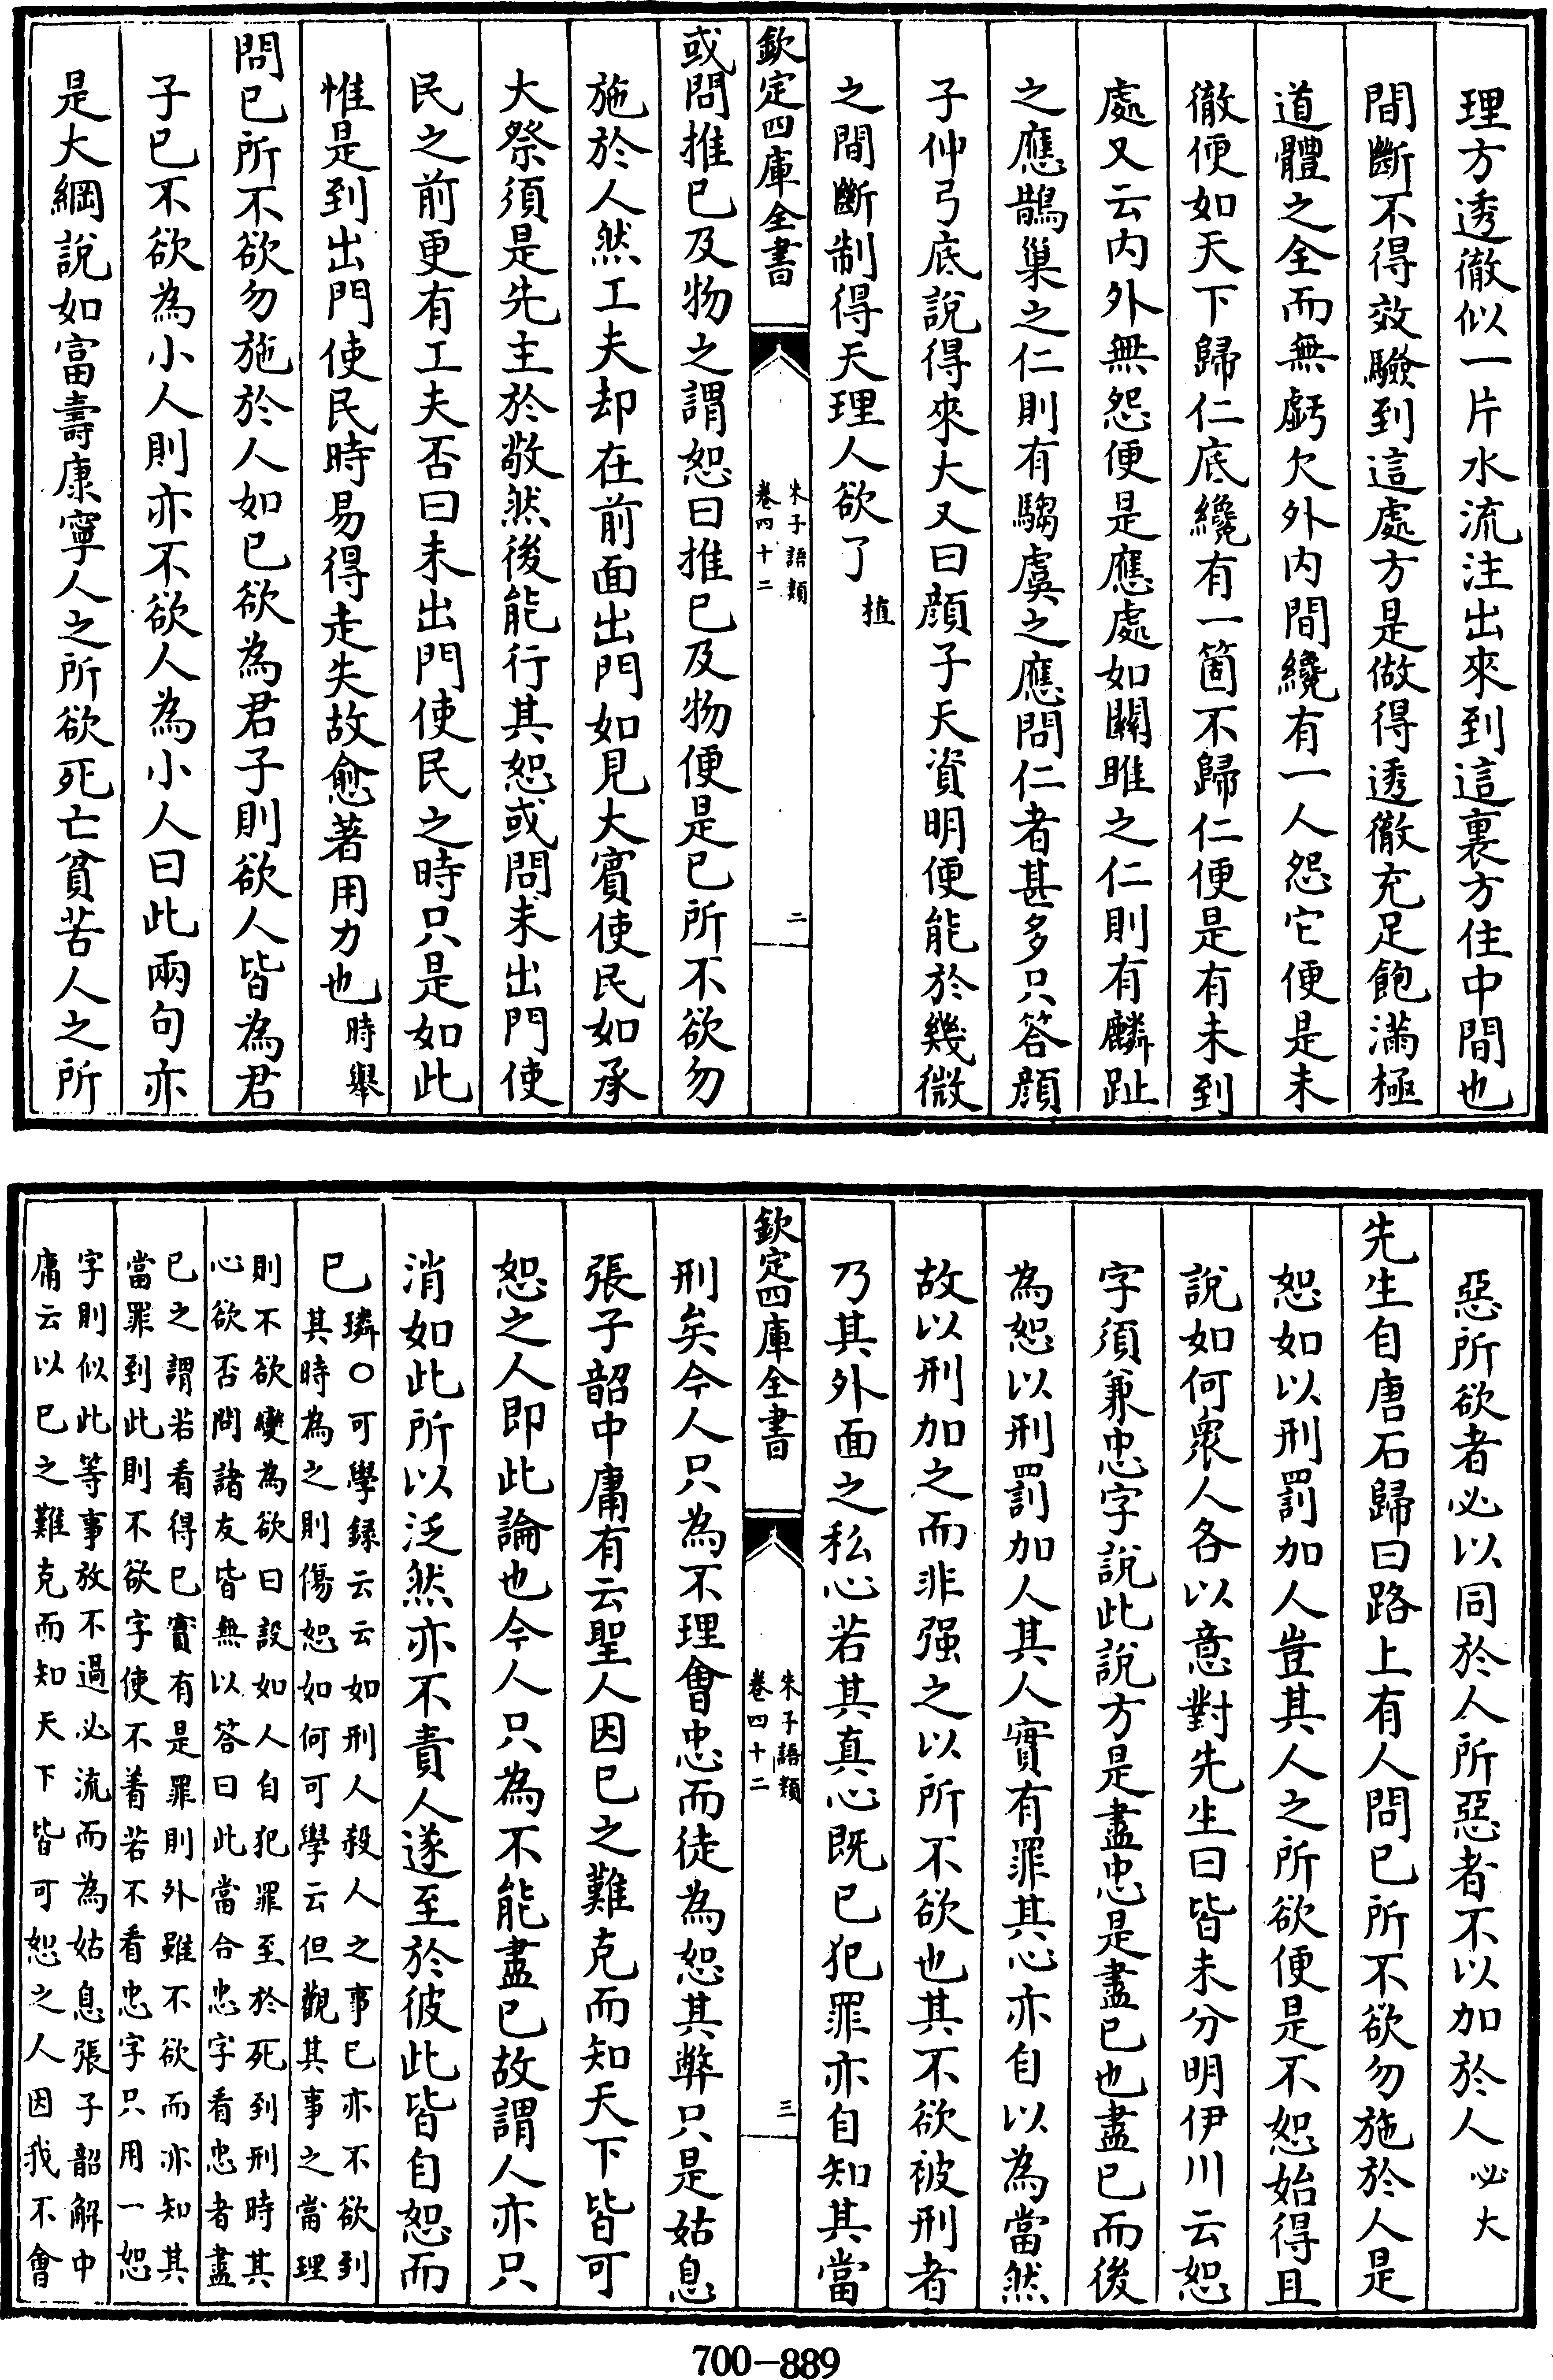 理方透徹似一片水流注出來到這裏方住中間也
間斷不得效驗到這處方是做得透徹充足飽滿極
道體之全而無虧欠外内間纔有一人怨它便是未
徹便如天下歸仁底纔有一箇不歸仁便是有未到
處又云内外無怨便是應處如關雎之仁則有麟趾
之應鵲巢之仁則有騶虞之應問仁者甚多只答顔
子仲弓底說得來大又曰顔子天資明便能於幾微
之間斷制得天理人欲了 植
欽定四庫全書
朱子語類
卷四十二
二
或問推已及物之謂恕曰推已及物便是已所不欲勿
施於人然工夫却在前面出門如見大賓使民如承
大祭須是先主於敬然後能行其恕或問未出門使
民之前更有工夫否曰未出門使民之時只是如此
惟是到出門使民時易得走失故愈著用力也 時舉
問已所不欲勿施於人如已欲為君子則欲人皆為君
子已不欲為小人則亦不欲人為小人曰此兩句亦
是大綱說如富壽康寧人之所欲死亡貧苦人之所
惡所欲者必以同於人所惡者不以加於人 必大
先生自唐石歸曰路上有人問已所不欲勿施於人是
恕如以刑罰加人豈其人之所欲便是不恕始得且
說如何衆人各以意對先生曰皆未分明伊川云恕
字須兼忠字說此說方是盡忠是盡已也盡已而後
為恕以刑罰加人其人實有罪其心亦自以為當然
故以刑加之而非强之以所不欲也其不欲被刑者
乃其外面之私心若其真心既已犯罪亦自知其當
欽定四庫全書
朱子語類
卷四十二
三
刑矣今人只為不理會忠而徒為恕其弊只是姑息
張子韶中庸有云聖人因已之難克而知天下皆可
恕之人即此論也今人只為不能盡已故謂人亦只
消如此所以泛然亦不責人遂至於彼此皆自恕而
已 璘○可學錄云云如刑人殺人之事已亦不欲到
其時為之則傷恕如何可學云但觀其事之當理
則不欲變為欲曰設如人自犯罪至於死到刑時其
心欲否問諸友皆無以答曰此當合忠字看忠者盡
已之謂若看得已實有是罪則外雖不欲而亦知其
當罪到此則不欲字使不着若不看忠字只用一恕
字則似此等事放不過必流而為姑息張子韶解中
庸云以已之難克而知天下皆可恕之人因我不會
700-889